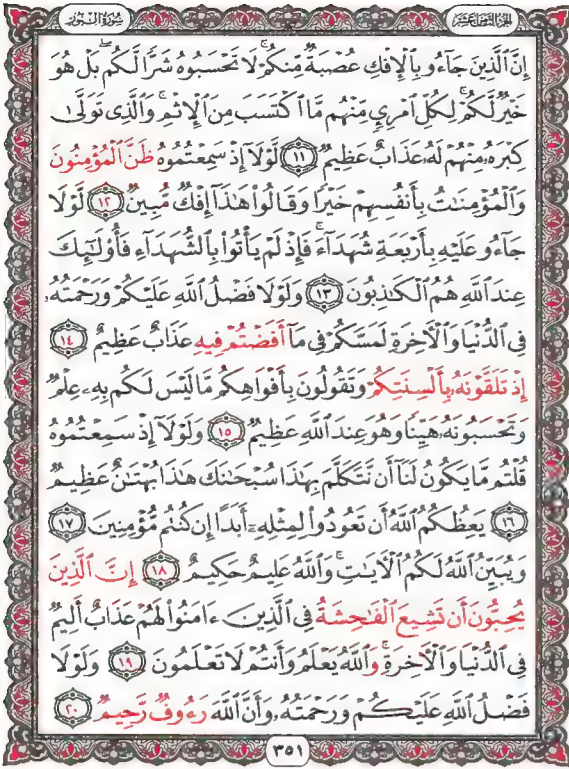 سُورَةُ النُّورِ
الجُزءُ الثَّامِنُ عَشَر
إِنَّ ٱلَّذِينَ جَآءُو بِٱلْإِفْكِ عُصْبَةٌ مِّنكُمْ ۚ لَا تَحْسَبُوهُ شَرًّا لَّكُم ۖ بَلْ هُوَ
خَيْرٌ لَّكُمْ ۚ لِكُلِّ ٱمْرِئٍ مِّنْهُم مَّا ٱكْتَسَبَ مِنَ ٱلْإِثْمِ ۚ وَٱلَّذِى تَوَلَّىٰ
كِبْرَهُۥ مِنْهُمْ لَهُۥ عَذَابٌ عَظِيمٌ ١١ لَّوْلَآ إِذْ سَمِعْتُمُوهُ ظَنَّ ٱلْمُؤْمِنُونَ
وَٱلْمُؤْمِنَٰتُ بِأَنفُسِهِمْ خَيْرًا وَقَالُوا۟ هَٰذَآ إِفْكٌ مُّبِينٌ ١٢ لَّوْلَا
جَآءُو عَلَيْهِ بِأَرْبَعَةِ شُهَدَآءَ ۚ فَإِذْ لَمْ يَأْتُوا۟ بِٱلشُّهَدَآءِ فَأُو۟لَٰٓئِكَ
عِندَ ٱللَّهِ هُمُ ٱلْكَٰذِبُونَ ١٣ وَلَوْلَا فَضْلُ ٱللَّهِ عَلَيْكُمْ وَرَحْمَتُهُۥ
فِى ٱلدُّنْيَا وَٱلْءَاخِرَةِ لَمَسَّكُمْ فِى مَآ أَفَضْتُمْ فِيهِ عَذَابٌ عَظِيمٌ ١٤
إِذْ تَلَقَّوْنَهُۥ بِأَلْسِنَتِكُمْ وَتَقُولُونَ بِأَفْوَاهِكُم مَّا لَيْسَ لَكُم بِهِۦ عِلْمٌ
وَتَحْسَبُونَهُۥ هَيِّنًا وَهُوَ عِندَ ٱللَّهِ عَظِيمٌ ١٥ وَلَوْلَآ إِذْ سَمِعْتُمُوهُ
قُلْتُم مَّا يَكُونُ لَنَآ أَن نَّتَكَلَّمَ بِهَٰذَا سُبْحَٰنَكَ هَٰذَا بُهْتَٰنٌ عَظِيمٌ
١٦ يَعِظُكُمُ ٱللَّهُ أَن تَعُودُوا۟ لِمِثْلِهِۦٓ أَبَدًا إِن كُنتُم مُّؤْمِنِينَ ١٧
وَيُبَيِّنُ ٱللَّهُ لَكُمُ ٱلْءَايَٰتِ ۚ وَٱللَّهُ عَلِيمٌ حَكِيمٌ ١٨ إِنَّ ٱلَّذِينَ
يُحِبُّونَ أَن تَشِيعَ ٱلْفَٰحِشَةُ فِى ٱلَّذِينَ ءَامَنُوا۟ لَهُمْ عَذَابٌ أَلِيمٌ
فِى ٱلدُّنْيَا وَٱلْءَاخِرَةِ ۚ وَٱللَّهُ يَعْلَمُ وَأَنتُمْ لَا تَعْلَمُونَ ١٩ وَلَوْلَا
فَضْلُ ٱللَّهِ عَلَيْكُمْ وَرَحْمَتُهُۥ وَأَنَّ ٱللَّهَ رَءُوفٌ رَّحِيمٌ ٢٠
٣٥١